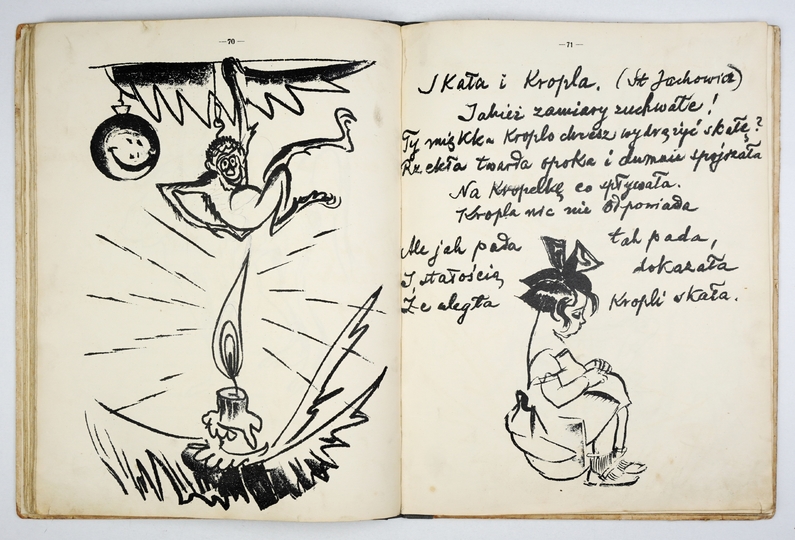 — 70 —
— 71 —
Skała i Kropla. (St Jachowicz)
Jakież zamiary zuchwałe!
Ty miękka Kroplo chcesz wydrążyć skałę?
Rzekła twarda opoka i dumnie spojrzała
Na Kropelkę co spływała.
Kropla nic nie odpowiada
Ale jak pada tak pada,
I stałością dokazała
Że uległa Kropli skała.